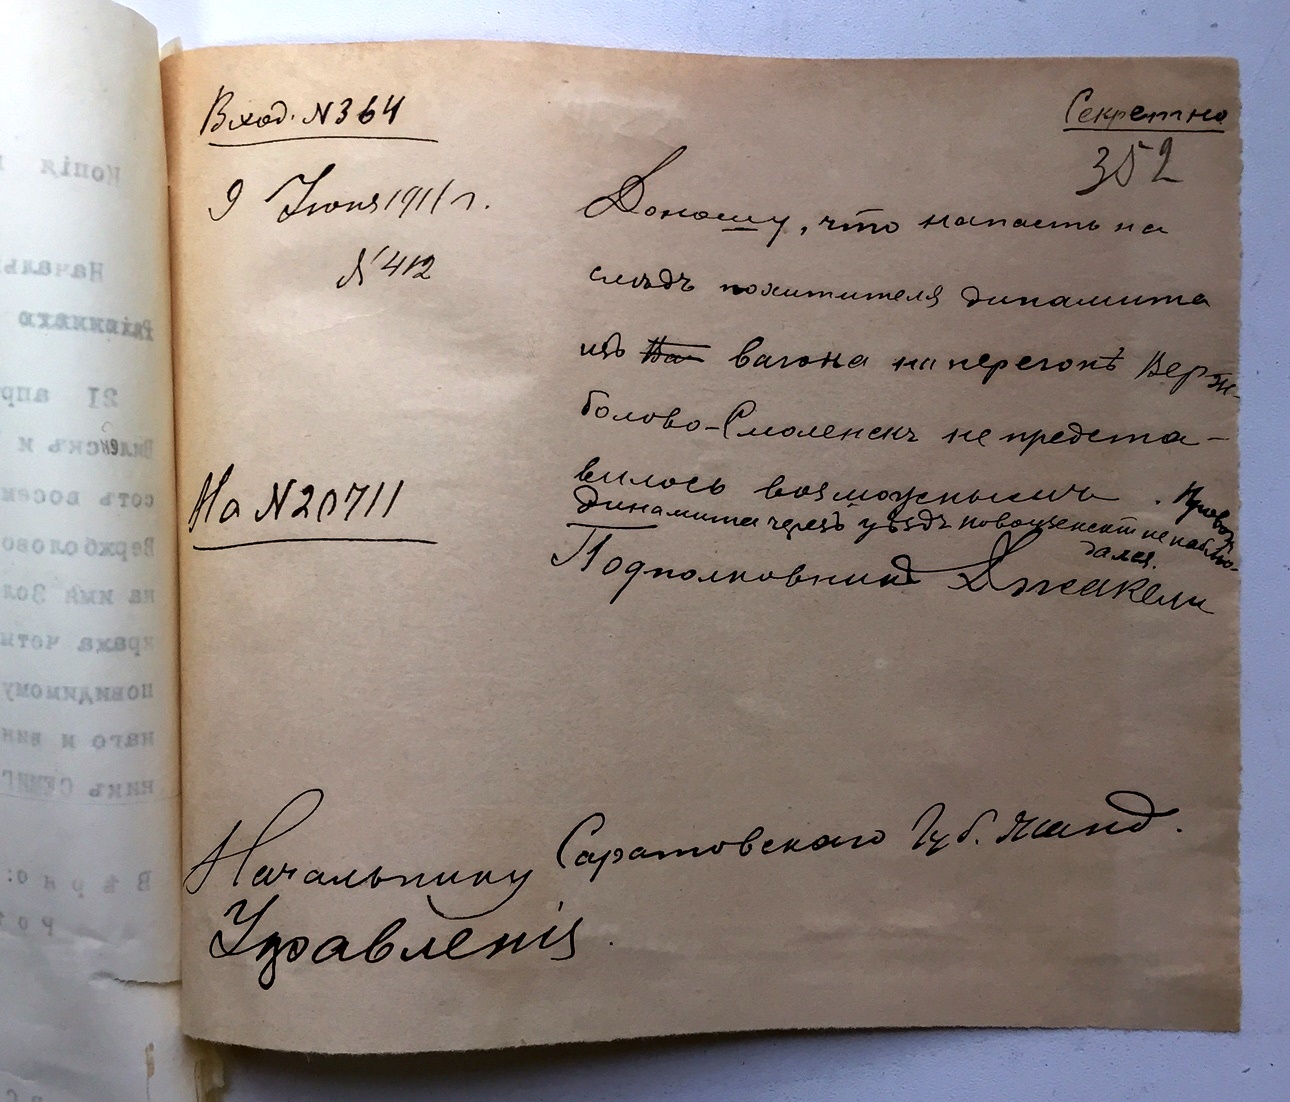 Вход. N 364
Секретно
352
9 Июня 1911 г.
№ 412
Доношу, что напасть на
слѣдъ похитителя динамита
изъ Ва вагона на перегонѣ Верж-
болово-Смоленскъ не предста-
вилось возможнымъ. Провоз
динамита черезъ уѣздъ не наблю-
дался.
На N 20711
Подполковникъ Джакели
Начальнику Саратовскаго Губ. Жанд.
Управленія.
Копія
Началь
21 апр
Виленскъ и
сотъ восем
Вержболово
на имя Зол
кража четы
повидимому
наго и вин
никъ
Вѣрно:
Рот